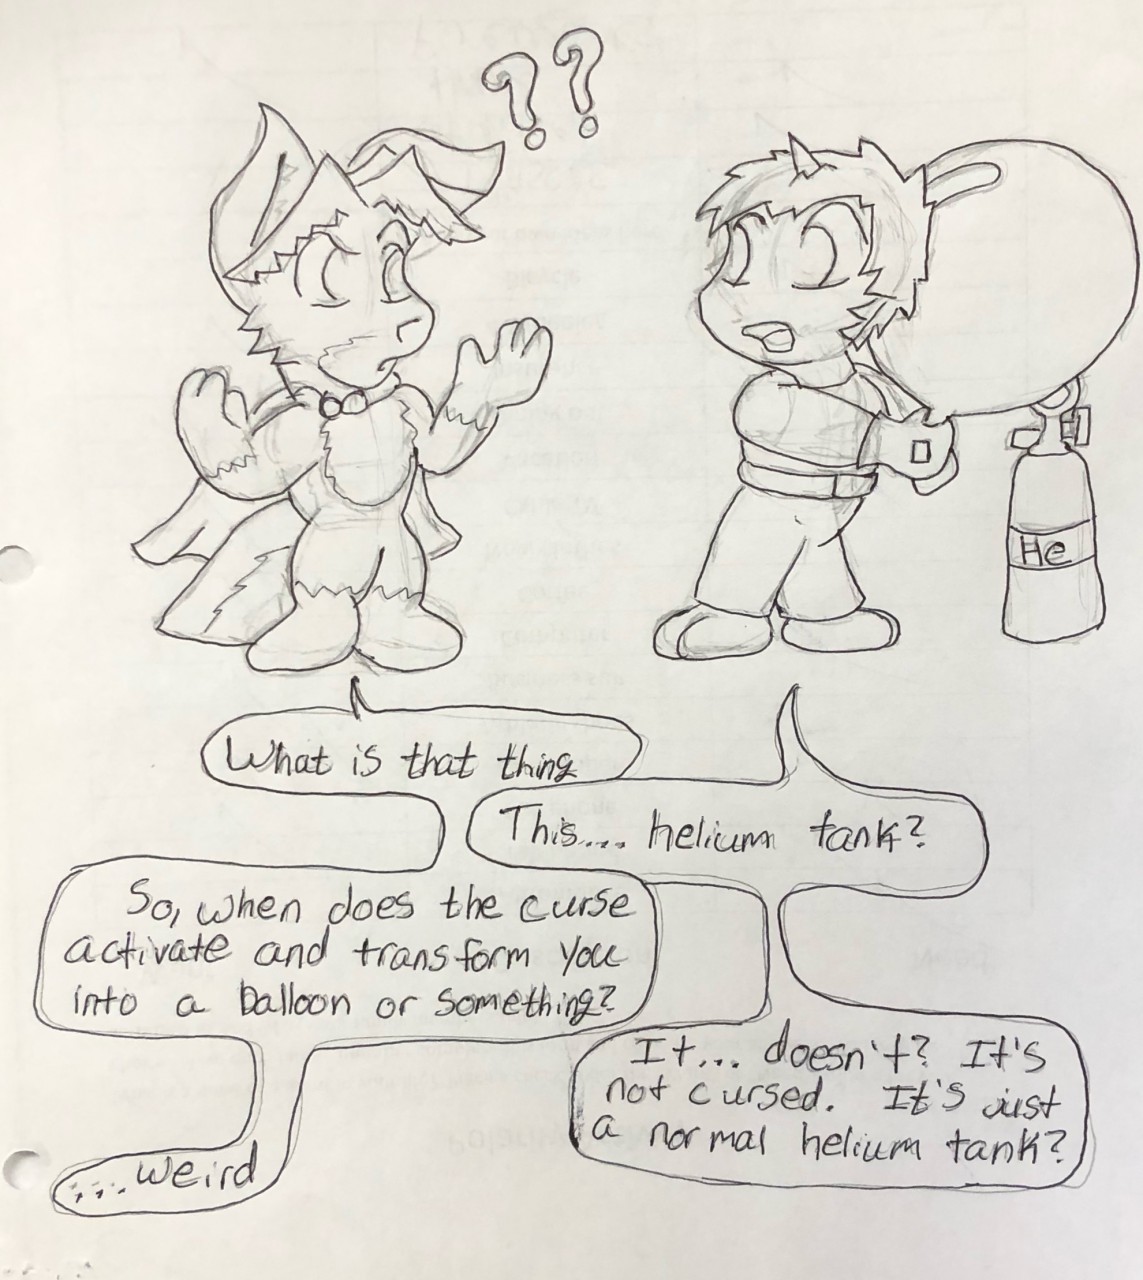 ? ?
He
What is that thing
This.... helium tank?
So, when does the curse
activate and transform you
into a balloon or something?
It... doesn't? It's
not cursed. It's just
a normal helium tank?
....weird